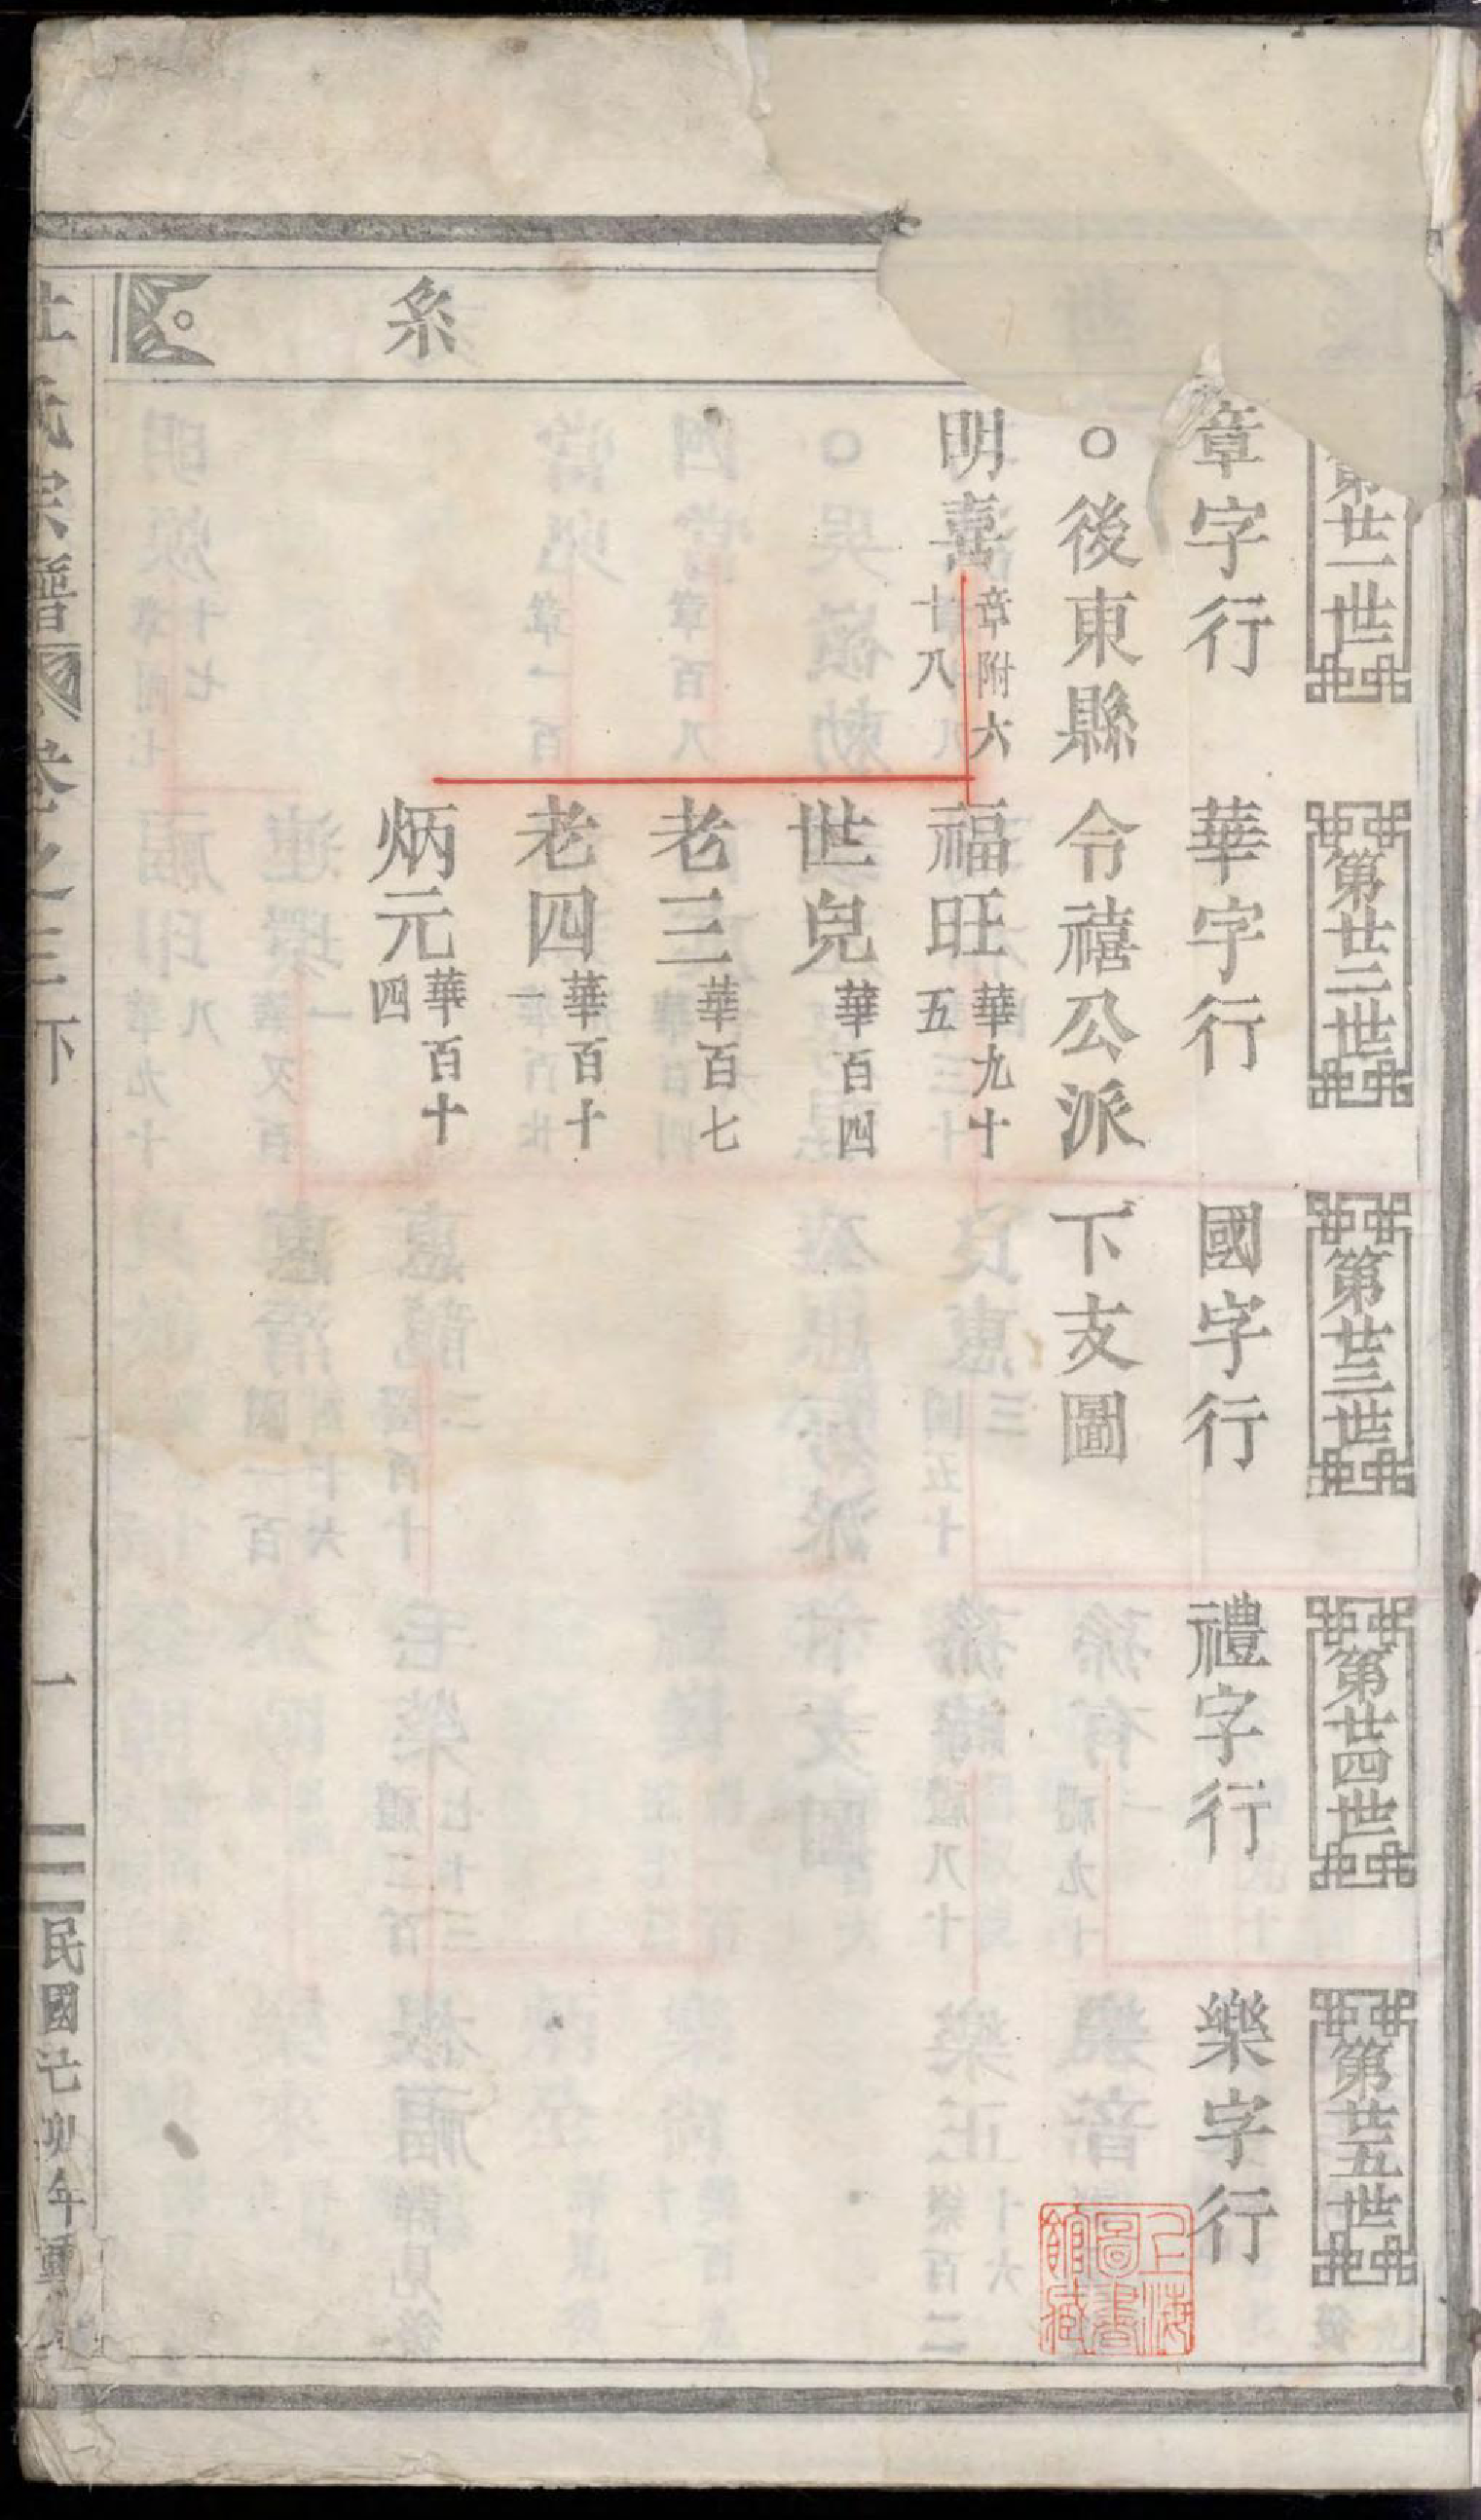 系
第廿一世
第廿二世
第廿三世
第廿四世
第廿五世
章字行
華字行
國字行
禮字行
樂字行
○後東縣令禧公派下支圖
明嘉
章附六
十八
福旺
華九十
五
世兒
華百四
老三
華百七
老四
華百十
一
炳元
華百十
四
氏宗譜
卷之三下
一
民國
卯年重
上海
圖書
館藏